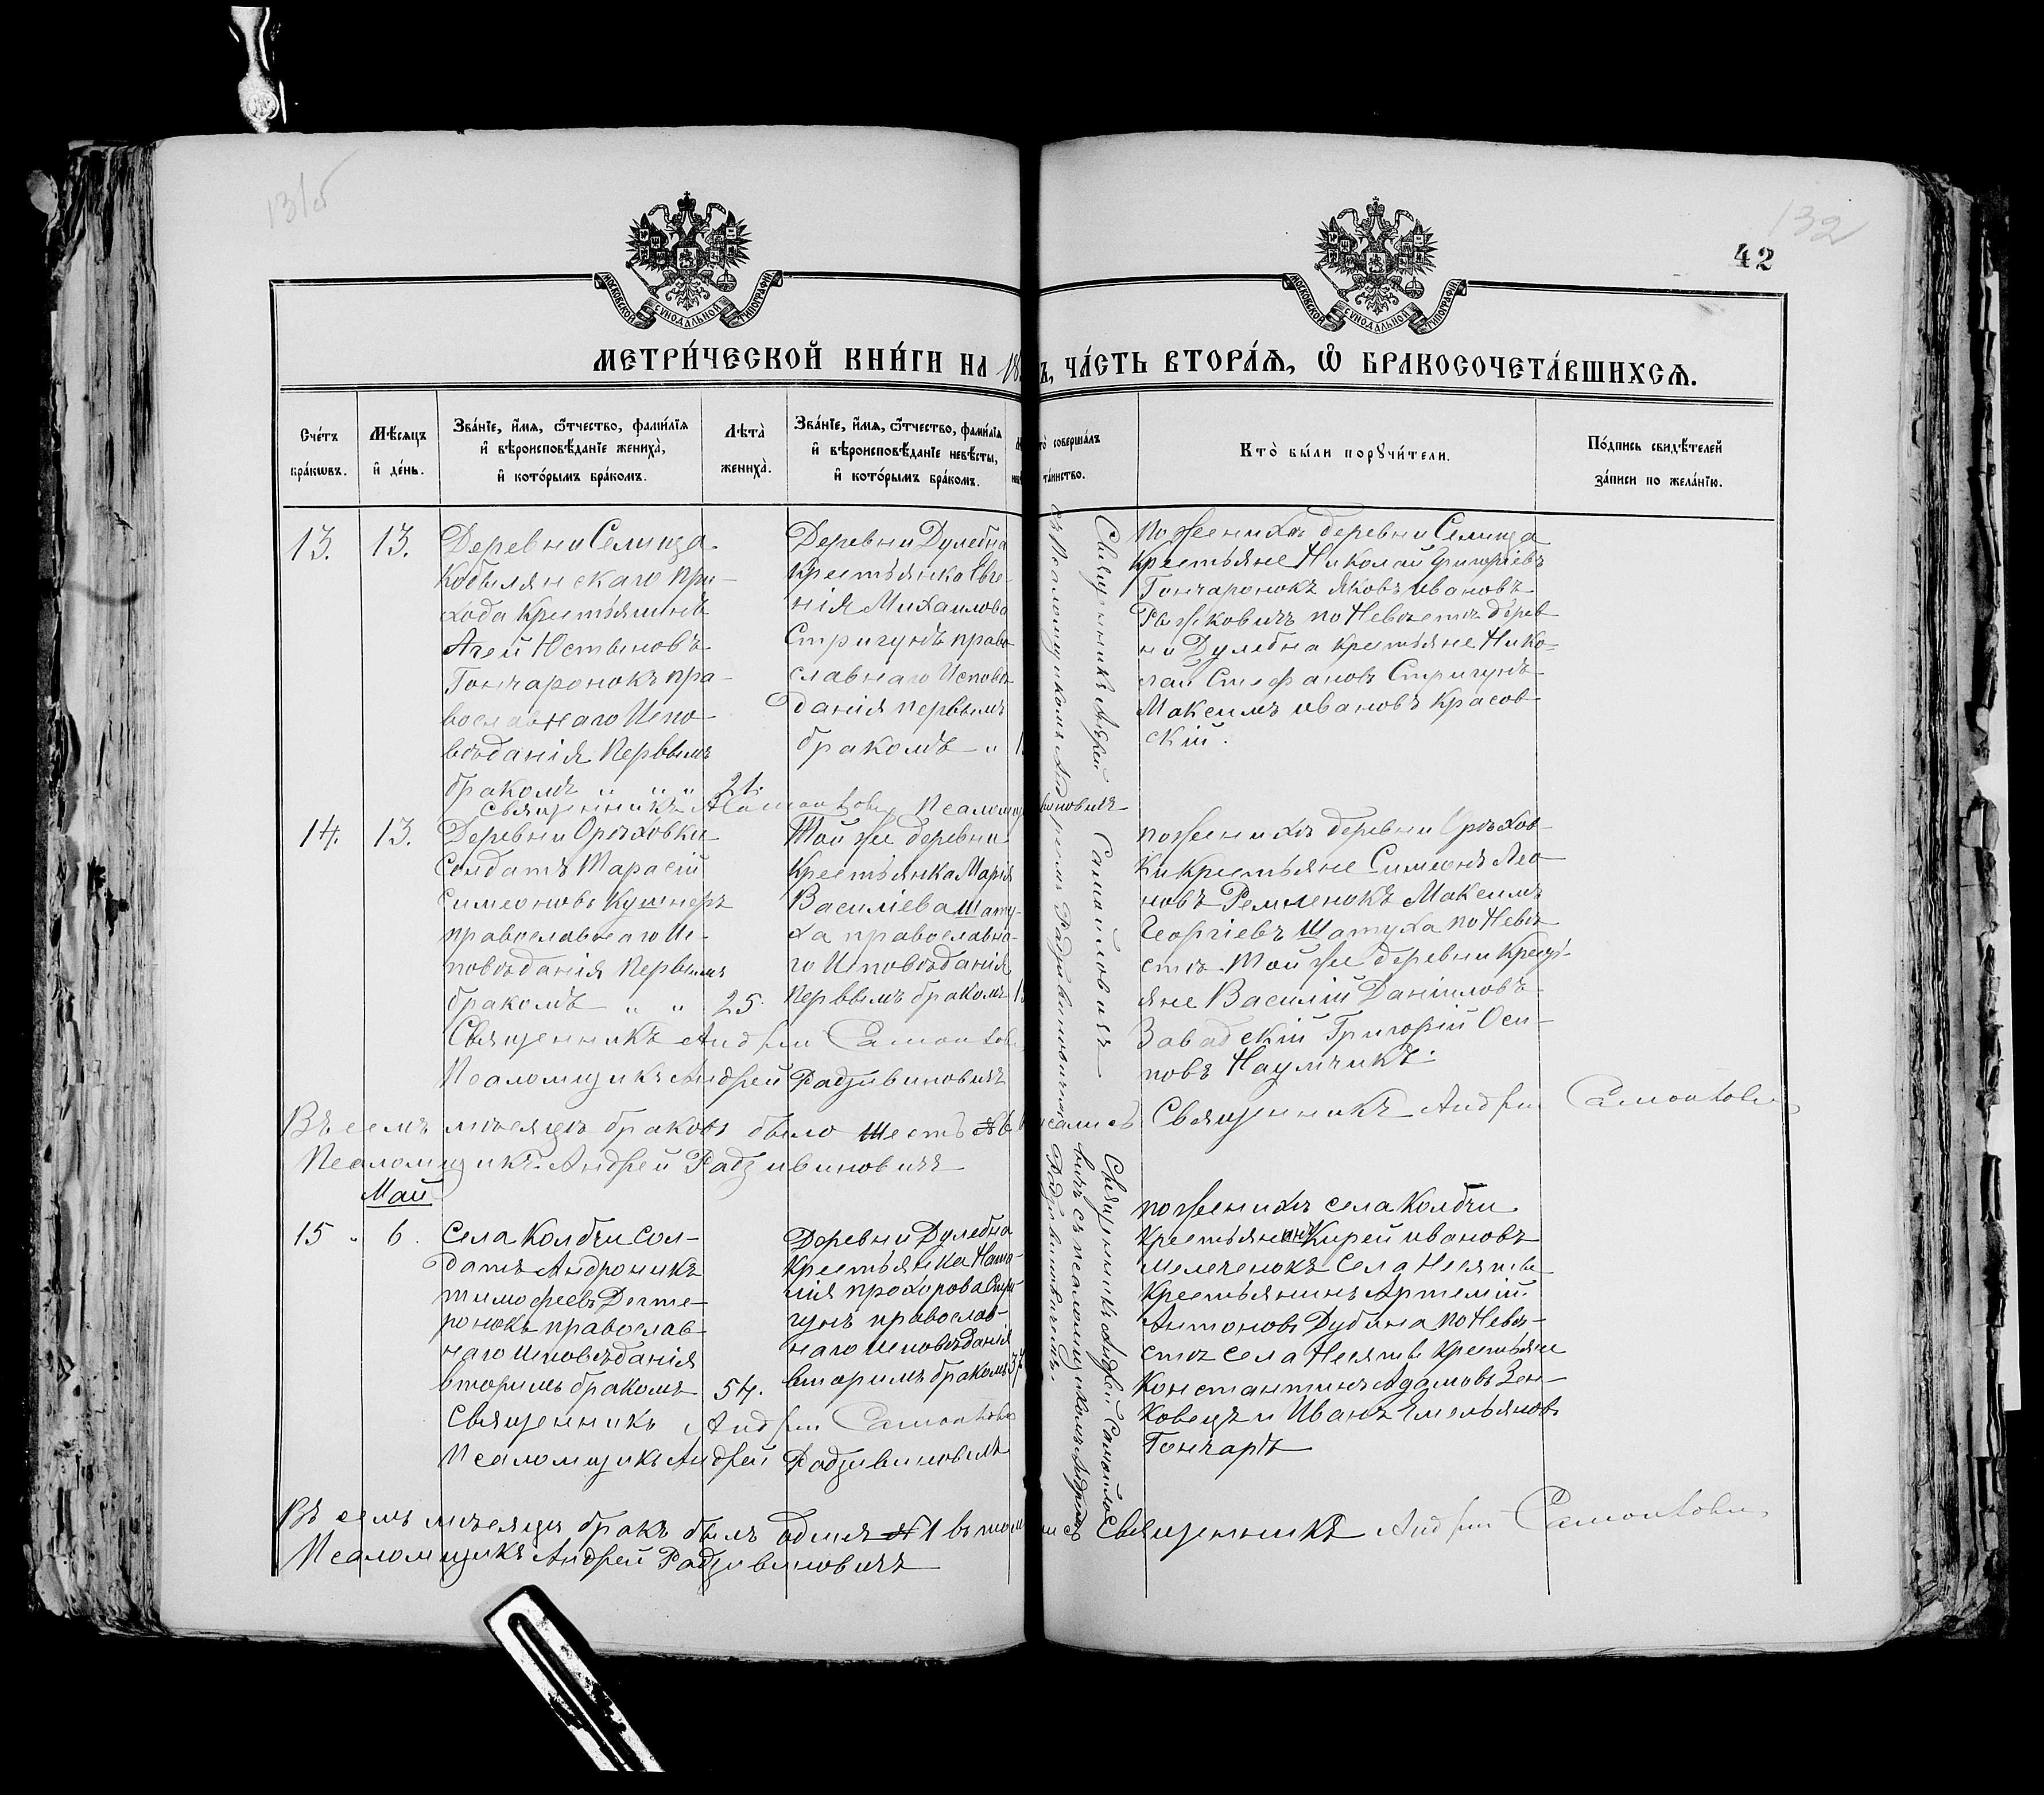 131об
132
42
МОСКОВСКОЙ СѴНОДАЛЬНОЙ ТИПОГРАФІИ
МОСКОВСКОЙ СѴНОДАЛЬНОЙ ТИПОГРАФІИ
МЕТРИ́ЧЕСКОЙ КНИ́ГИ НА 18 Ъ, ЧА́СТЬ ВТОРА́Ѧ, Ѿ БРАКОСОЧЕТА́ВШИХСѦ.
Сче́тъ
бра́кѡвъ.
Мѣ́сѧцъ
и҆ де́нь.
Зва́нїе, и҆́мѧ, ѻ҆́тчество, фами́лїѧ
и҆ вѣроисповѣ́данїе жениха̀,
и҆ кото́рымъ бра́комъ.
Лѣта̀
жениха̀.
Зва́нїе, и҆́мѧ, ѻ҆́тчество, фами́лїѧ
и҆ вѣроисповѣ́данїе невѣ́сты,
и҆ кото́рымъ бра́комъ.
соверша́лъ
та́инство.
Кто̀ бы́ли порꙋчи́тели.
По́дпись свидѣ́телей
за́писи по жела́нїю.
13.
13.
Деревни Селища
Кобылянскаго при-
хода Крестьянинъ
Агей Устиновъ
Гончаронокъ пра-
вославнаго Испо-
вѣданія Первымъ
бракомъ " " "
21.
Деревни Дулебна
Крестьянка Евге-
нія Михаилова
Стригунъ право
славнаго Исповѣ
данія первымъ
бракомъ "
Священникъ Андрей Самойловичъ
съ Псаломщикомъ Андреемъ Радзивиновичемъ
По Женихѣ деревни Селища
Крестьяне Николай Григоріевъ
Гончаронокъ Яковъ Ивановъ
Ражковичъ по Невѣстѣ дерев
ни Дулебна крестьяне Нико-
лай Стефановъ Стригунъ
Максимъ Ивановъ Красов-
скій.
Священникъ Самойлович
14.
13.
Деревни Орѣховки
Солдатъ Тарасій
Симеоновъ Кушнеръ
православнаго Ис-
повѣданія Первымъ
бракомъ " "
25.
Той же деревни
Крестьянка Марія
Василіева Шату-
ха православна-
го Исповѣданія
Первымъ бракомъ
По Женихѣ деревни Орѣхов-
ки Крестьяне Симеонъ Лео
новъ Ремненокъ Максимъ
Георгіевъ Шатуха по Невѣ
стѣ Той же деревни Крестьяне
Василій Даніиловъ
Завадскій Григорій Оси-
повъ Наумчикъ.
Священникъ Андрей Самойлович
Псаломщикъ Андрей Радзивиновичъ
Въ семъ мѣсяцѣ браковъ было шесть
Священникъ Андрей Самойлович
Псаломщикъ Андрей Радзивиновичъ
Май
15
6.
Села Колбчи Сол-
датъ Андроникъ
Тимофеевъ Дегте-
ронокъ православ-
наго Исповѣданія
вторимъ бракомъ
54.
Деревни Дулебна
Крестьянка Ната-
лія Прохорова Стри
гунъ православ-
наго Исповѣданія
вторимъ бракомъ
Священникъ Андрей Самойло
вичъ съ псаломщикомъ Андреемъ
Радзивиновичемъ.
По Женихѣ села Колбчи
Крестьянинъ Кирей Ивановъ
Мелеченокъ Села Несяты
Крестьянинъ Артемій
Антоновъ Дубина по Невѣ-
стѣ села Несяты крестьяне
Константинъ Адамовъ Зен-
ковецъ и Иванъ Емельяновъ
Гончаръ
Священникъ Андрей Самойлович
Псаломщикъ Андрей Радзивиновичъ
Въ семъ мѣсяцѣ бракъ былъ одинъ № 1 въ томъ
Священникъ Андрей Самойлович
Псаломщикъ Андрей Радзивиновичъ